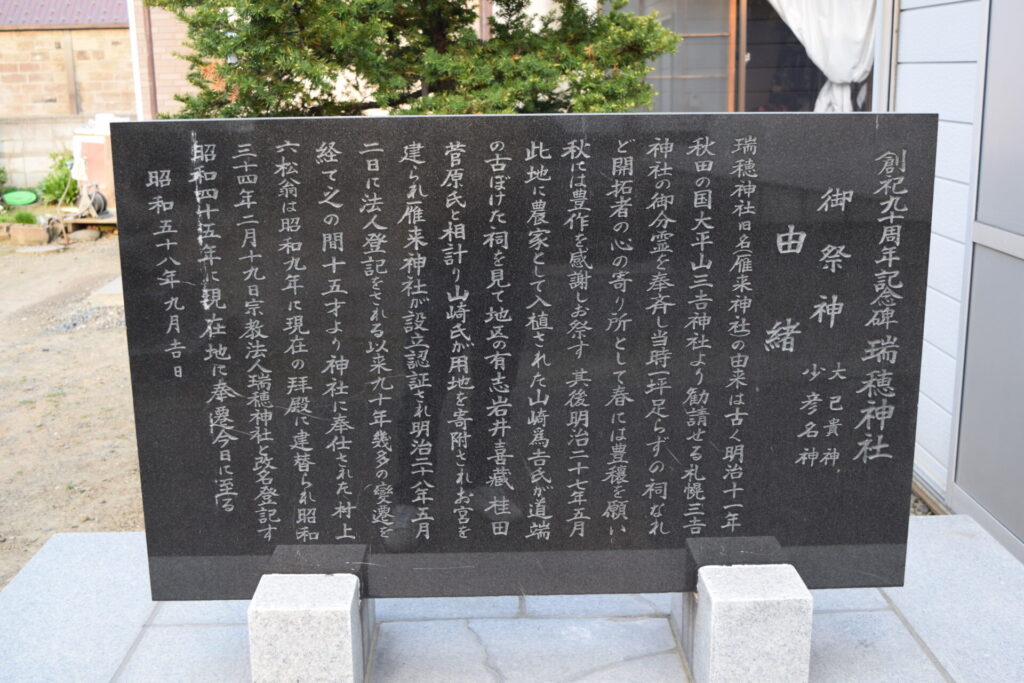 創祀九十周年記念碑 瑞穂神社
御祭神 大己貴神
少彦名神
由緒
瑞穂神社旧名雁来神社の由来は古く明治十一年
秋田の国大平山三吉神社より勧請せる札幌三吉
神社の御分霊を奉斉し当時一坪足らずの祠なれ
ど開拓者の心の寄り所として春には豊穣を願い
秋には豊作を感謝しお祭す 其後明治二十七年五月
此地に農家として入植された山崎為吉氏が道端
の古ぼけた祠を見て地区の有志岩井喜蔵 桂田
菅原氏と相計り山崎氏が用地を寄附されお宮を
建られ雁来神社が設立認証され明治二十八年五月
二日に法人登記をされる以来九十年幾多の変遷を
経て之の間十五才より神社に奉仕された村上
六松翁は昭和九年に現在の拝殿に建替られ昭和
三十四年二月十九日宗教法人瑞穂神社と改名登記す
昭和四十五年に現在地に奉遷今日に至る
昭和五十八年九月吉日